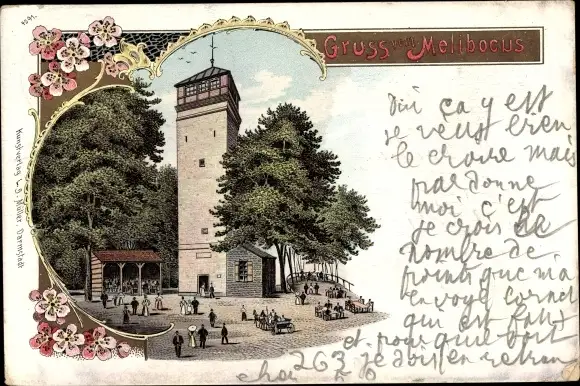 1091.
Gruss vom Melibocus
Kunstverlag v. D. Müller, Darmstadt
Oui ça y est
je veux bien
le croire mais
pardonne
moi c'est
je crois le
nombre de
points que m'a
envoyé Cornet
qui est faux
et pourquoi
263 je dois en